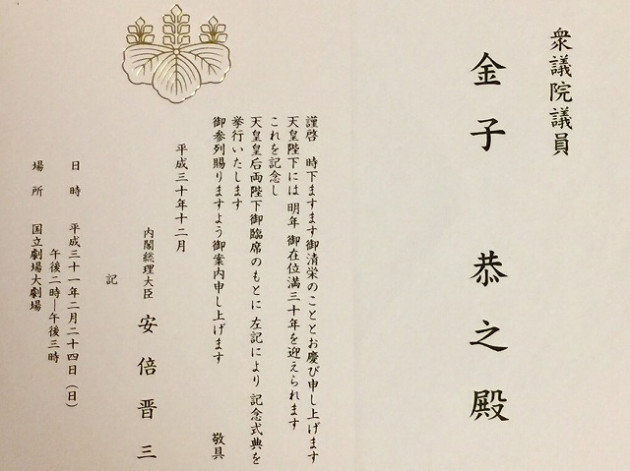 衆議院議員
金子 恭之 殿
謹啓 時下ますます御清栄のこととお慶び申し上げます
天皇陛下には 明年 御在位満三十年を迎えられます
これを記念し
天皇皇后両陛下御臨席のもとに 左記により 記念式典を
挙行いたします
御参列賜りますよう御案内申し上げます
敬具
平成三十年十二月
内閣総理大臣 安倍晋三
記
日時 平成三十一年二月二十四日(日)
午後二時―午後三時
場所 国立劇場大劇場